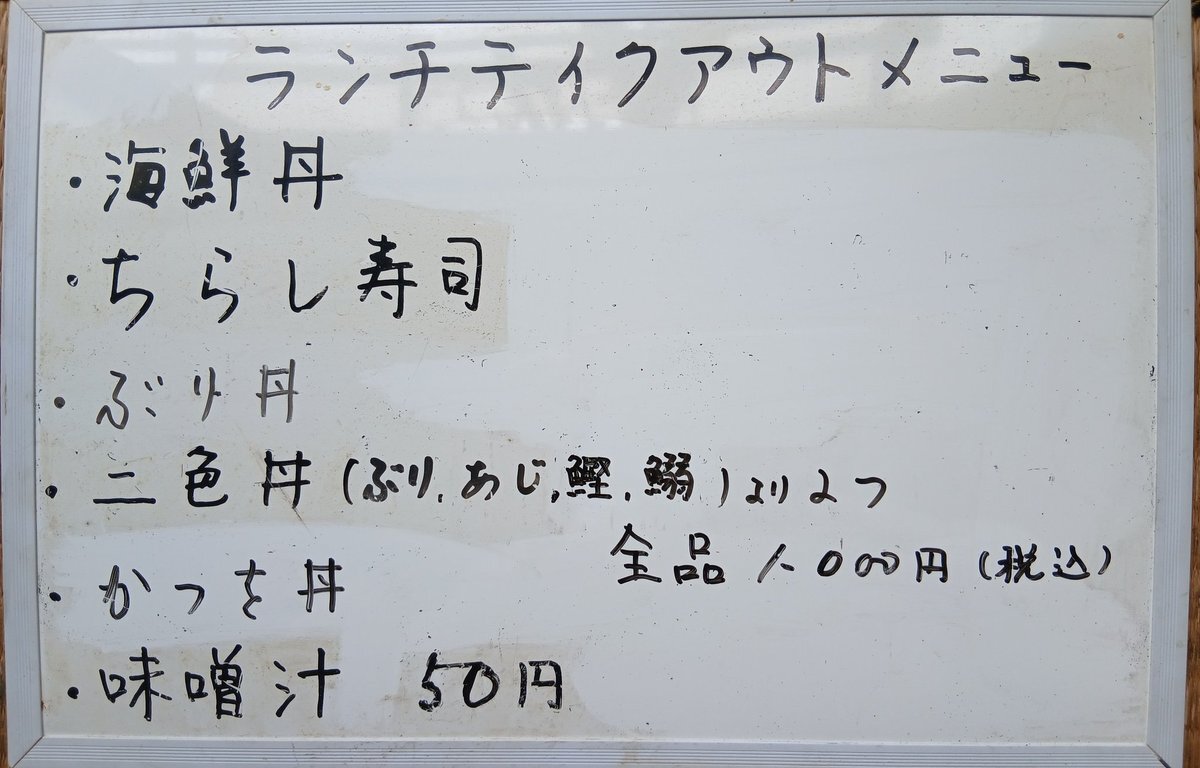 ランチテイクアウトメニュー
・海鮮丼
・ちらし寿司
・ぶり丼
・二色丼(ぶり、あじ、鰹、鰯)より2つ
・かつを丼
全品 1,000円(税込)
・味噌汁 50円